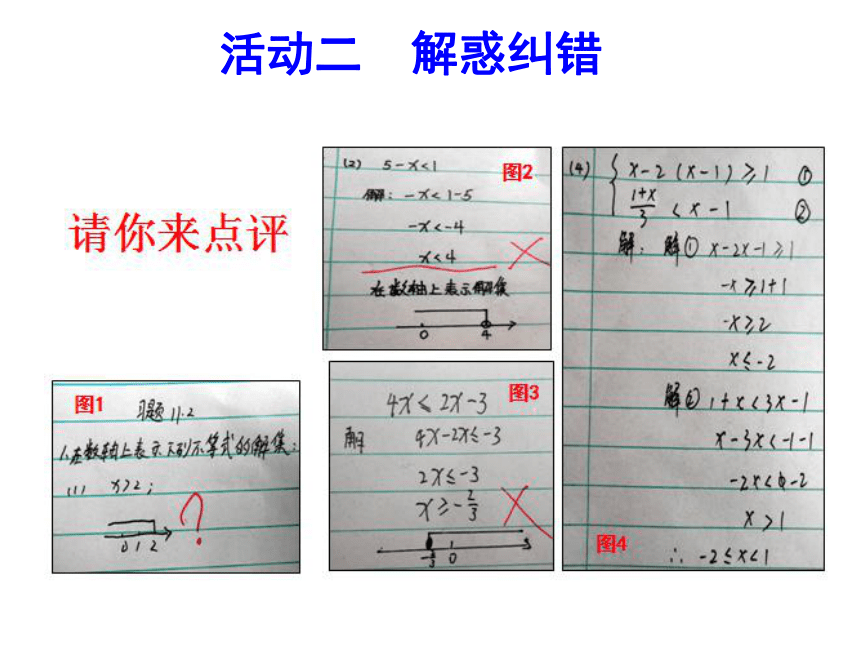 活动二 解惑纠错
请你来点评
图1
习题11.2
1.在数轴上表示下列不等式的解集:
(1) x>2;
0 1 2
?
(2) 5-x<1
图2
解: -x<1-5
-x<-4
x<4
在数轴上表示解集
0 4
4x≤2x-3
图3
解 4x-2x≤-3
2x≤-3
x≥-2/3
0
(4) { x-2(x-1)≥1 ①
(1+x)/3 < x-1 ②
解: 解① x-2x-1≥1
-x≥1+1
-x≥2
x≤-2
解② 1+x<3x-1
x-3x<-1-1
-2x<-2
x>1
图4
∴ -2≤x<1